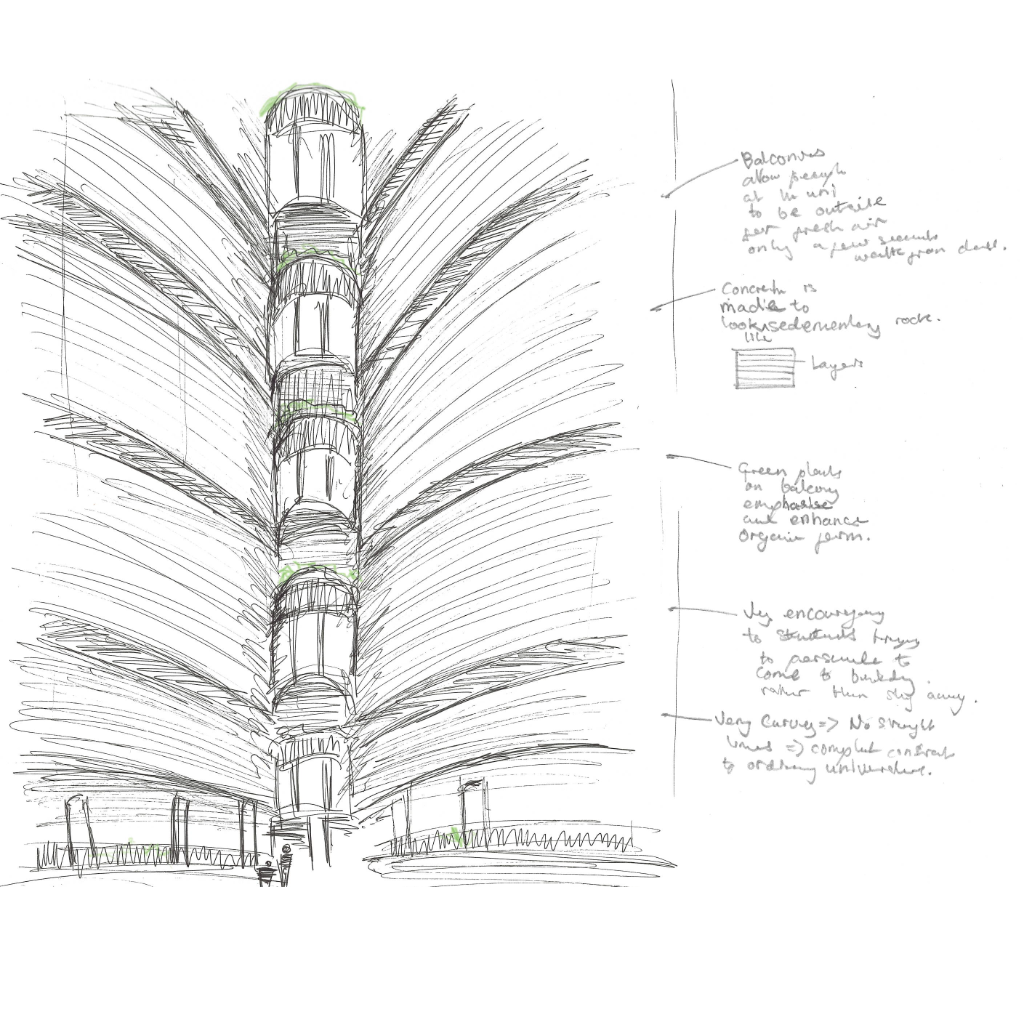 Balconies
allow people
at the uni
to be outside
for fresh air
only a few seconds
walk from desk.
Concrete is
made to
look sedementary rock.
like
Layers
Green plants
on balcony
emphasise
and enhance
organic form.
Very encouraging
to students trying
to persuade to
come to building.
rather than stay away.
Very Curvey => No straight
lines => complete contrast
to ordinary universities.